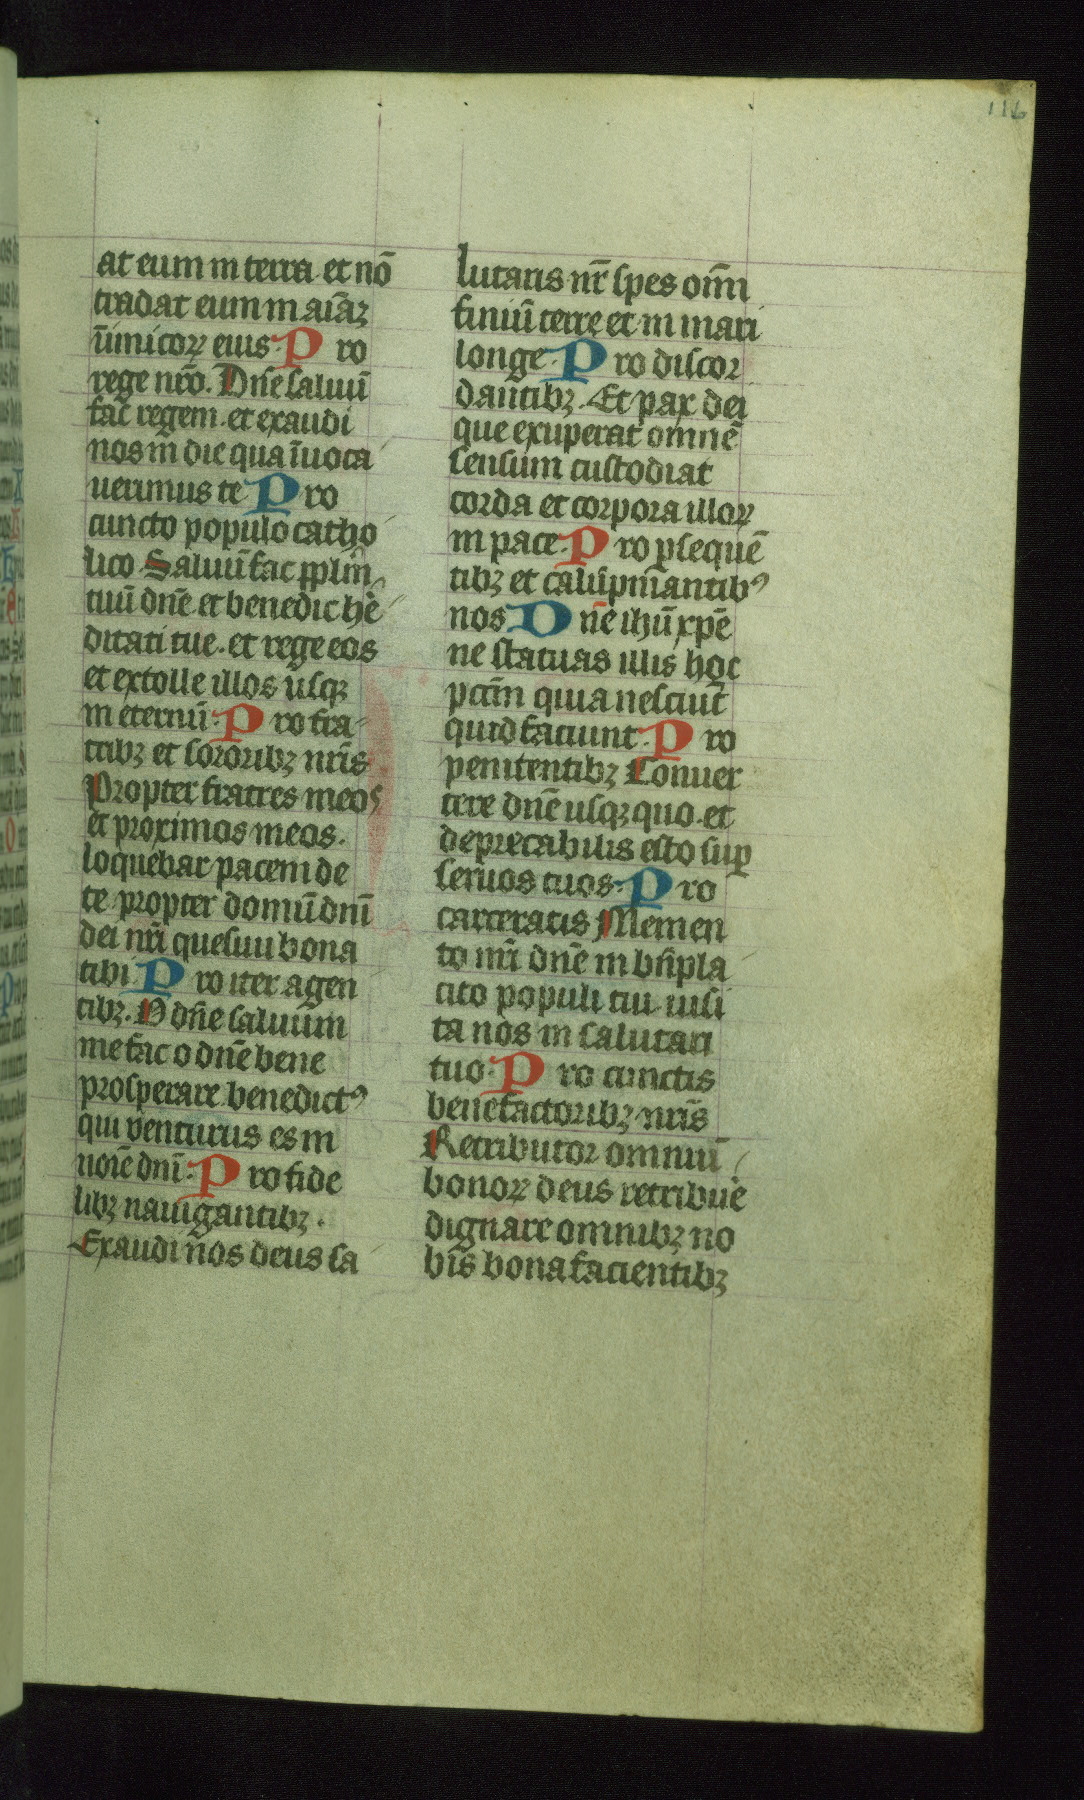 116
at eum in terra et nō
tradat eum in aīaꝫ
īimicoꝝ eius. Pro
rege nrō. Dn̄e saluū
fac regem et exaudi
nos in die qua īuoca
uerimus te Pro
cuncto populo catho
lico Saluū fac pplm̄
tuū dn̄e et benedic he
ditati tue. et rege eos
et extolle illos usqꝫ
in eternū. Pro fra
tribꝫ et sororibꝫ nrīs
Propter fratres meos
et proximos meos.
loquebar pacem de
te propter domū dnī
dei nrī quesiui bona
tibi Pro iter agen
tibꝫ. O dn̄e saluum
me fac o dn̄e bene
prosperare benedictꝰ
qui venturus es in
noīe dnī. Pro fide
libꝫ nauigantibꝫ.
Exaudi nos deus sa
lutaris nr̄ spes om̄i
finiū terre et in mari
longe. Pro discor
dantibꝫ. Et pax dei
que exuperat omnē
sensum custodiat
corda et corpora illoꝝ
in pace. Pro ꝑsequē
tibꝫ et calūpniantibꝰ
nos Dn̄e ihū xpē
ne statuas illis hoc
pctm̄ quia nesciūt
quid faciunt. Pro
penitentibꝫ Conuer
tere dn̄e usqꝫquo. et
deprecabilis esto suꝑ
seruos tuos. Pro
carceratis Memen
to nrī dn̄e in bn̄pla
cito populi tui uisi
ta nos in salutari
tuo. Pro cunctis
benefactoribꝫ nrīs
Retributor omniū
bonoꝝ deus retribue
dignare omnibꝫ no
bīs bona facientibꝫ